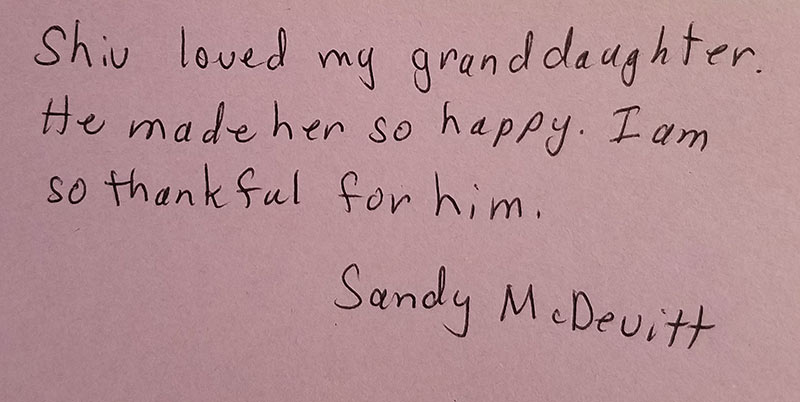 Shiv loved my granddaughter.
He made her so happy. I am
so thankful for him.
Sandy McDevitt